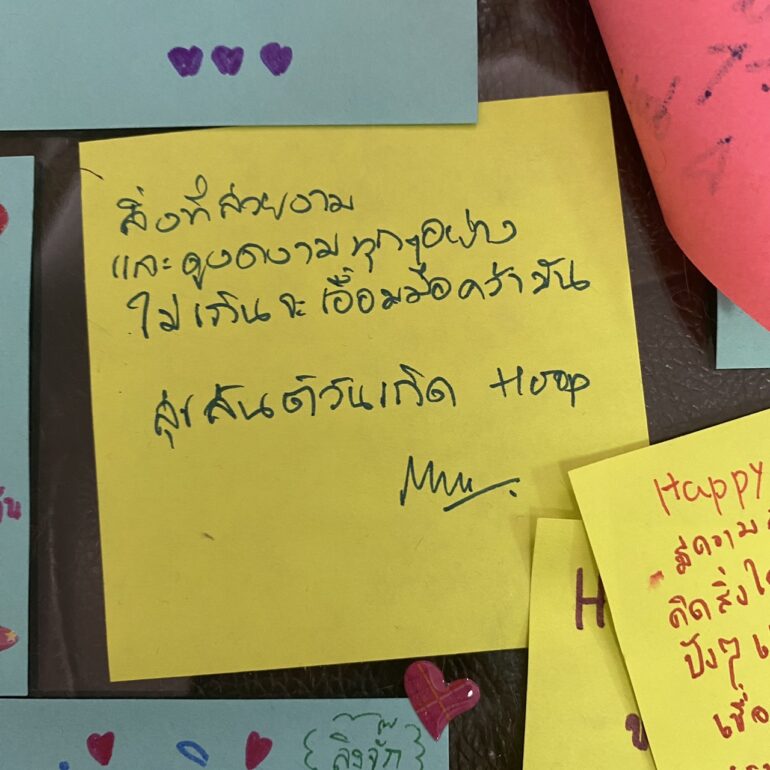 สิ่งที่สวยงาม
และดูงดงามทุกๆอย่าง
ไม่เกินจะเอื้อมมือคว้ามัน
สุขสันต์วันเกิด
Happy
มีความ
คิดสิ่งใด
ปังๆ
H